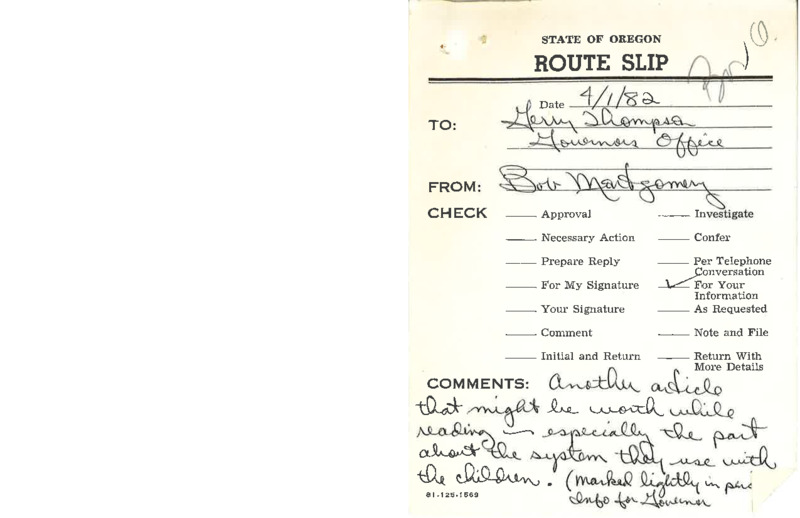 STATE OF OREGON
ROUTE SLIP
Date 4/1/82
TO: Gerry Thompson
Governors Office
FROM: Bob Montgomery
CHECK
Approval
Investigate
Necessary Action
Confer
Prepare Reply
Per Telephone Conversation
For My Signature
✓ For Your Information
Your Signature
As Requested
Comment
Note and File
Initial and Return
Return With More Details
COMMENTS: Another article
that might be worth while
reading — especially the part
about the system they use with
the children. (marked lightly in
Info for Governor
81-125-1569